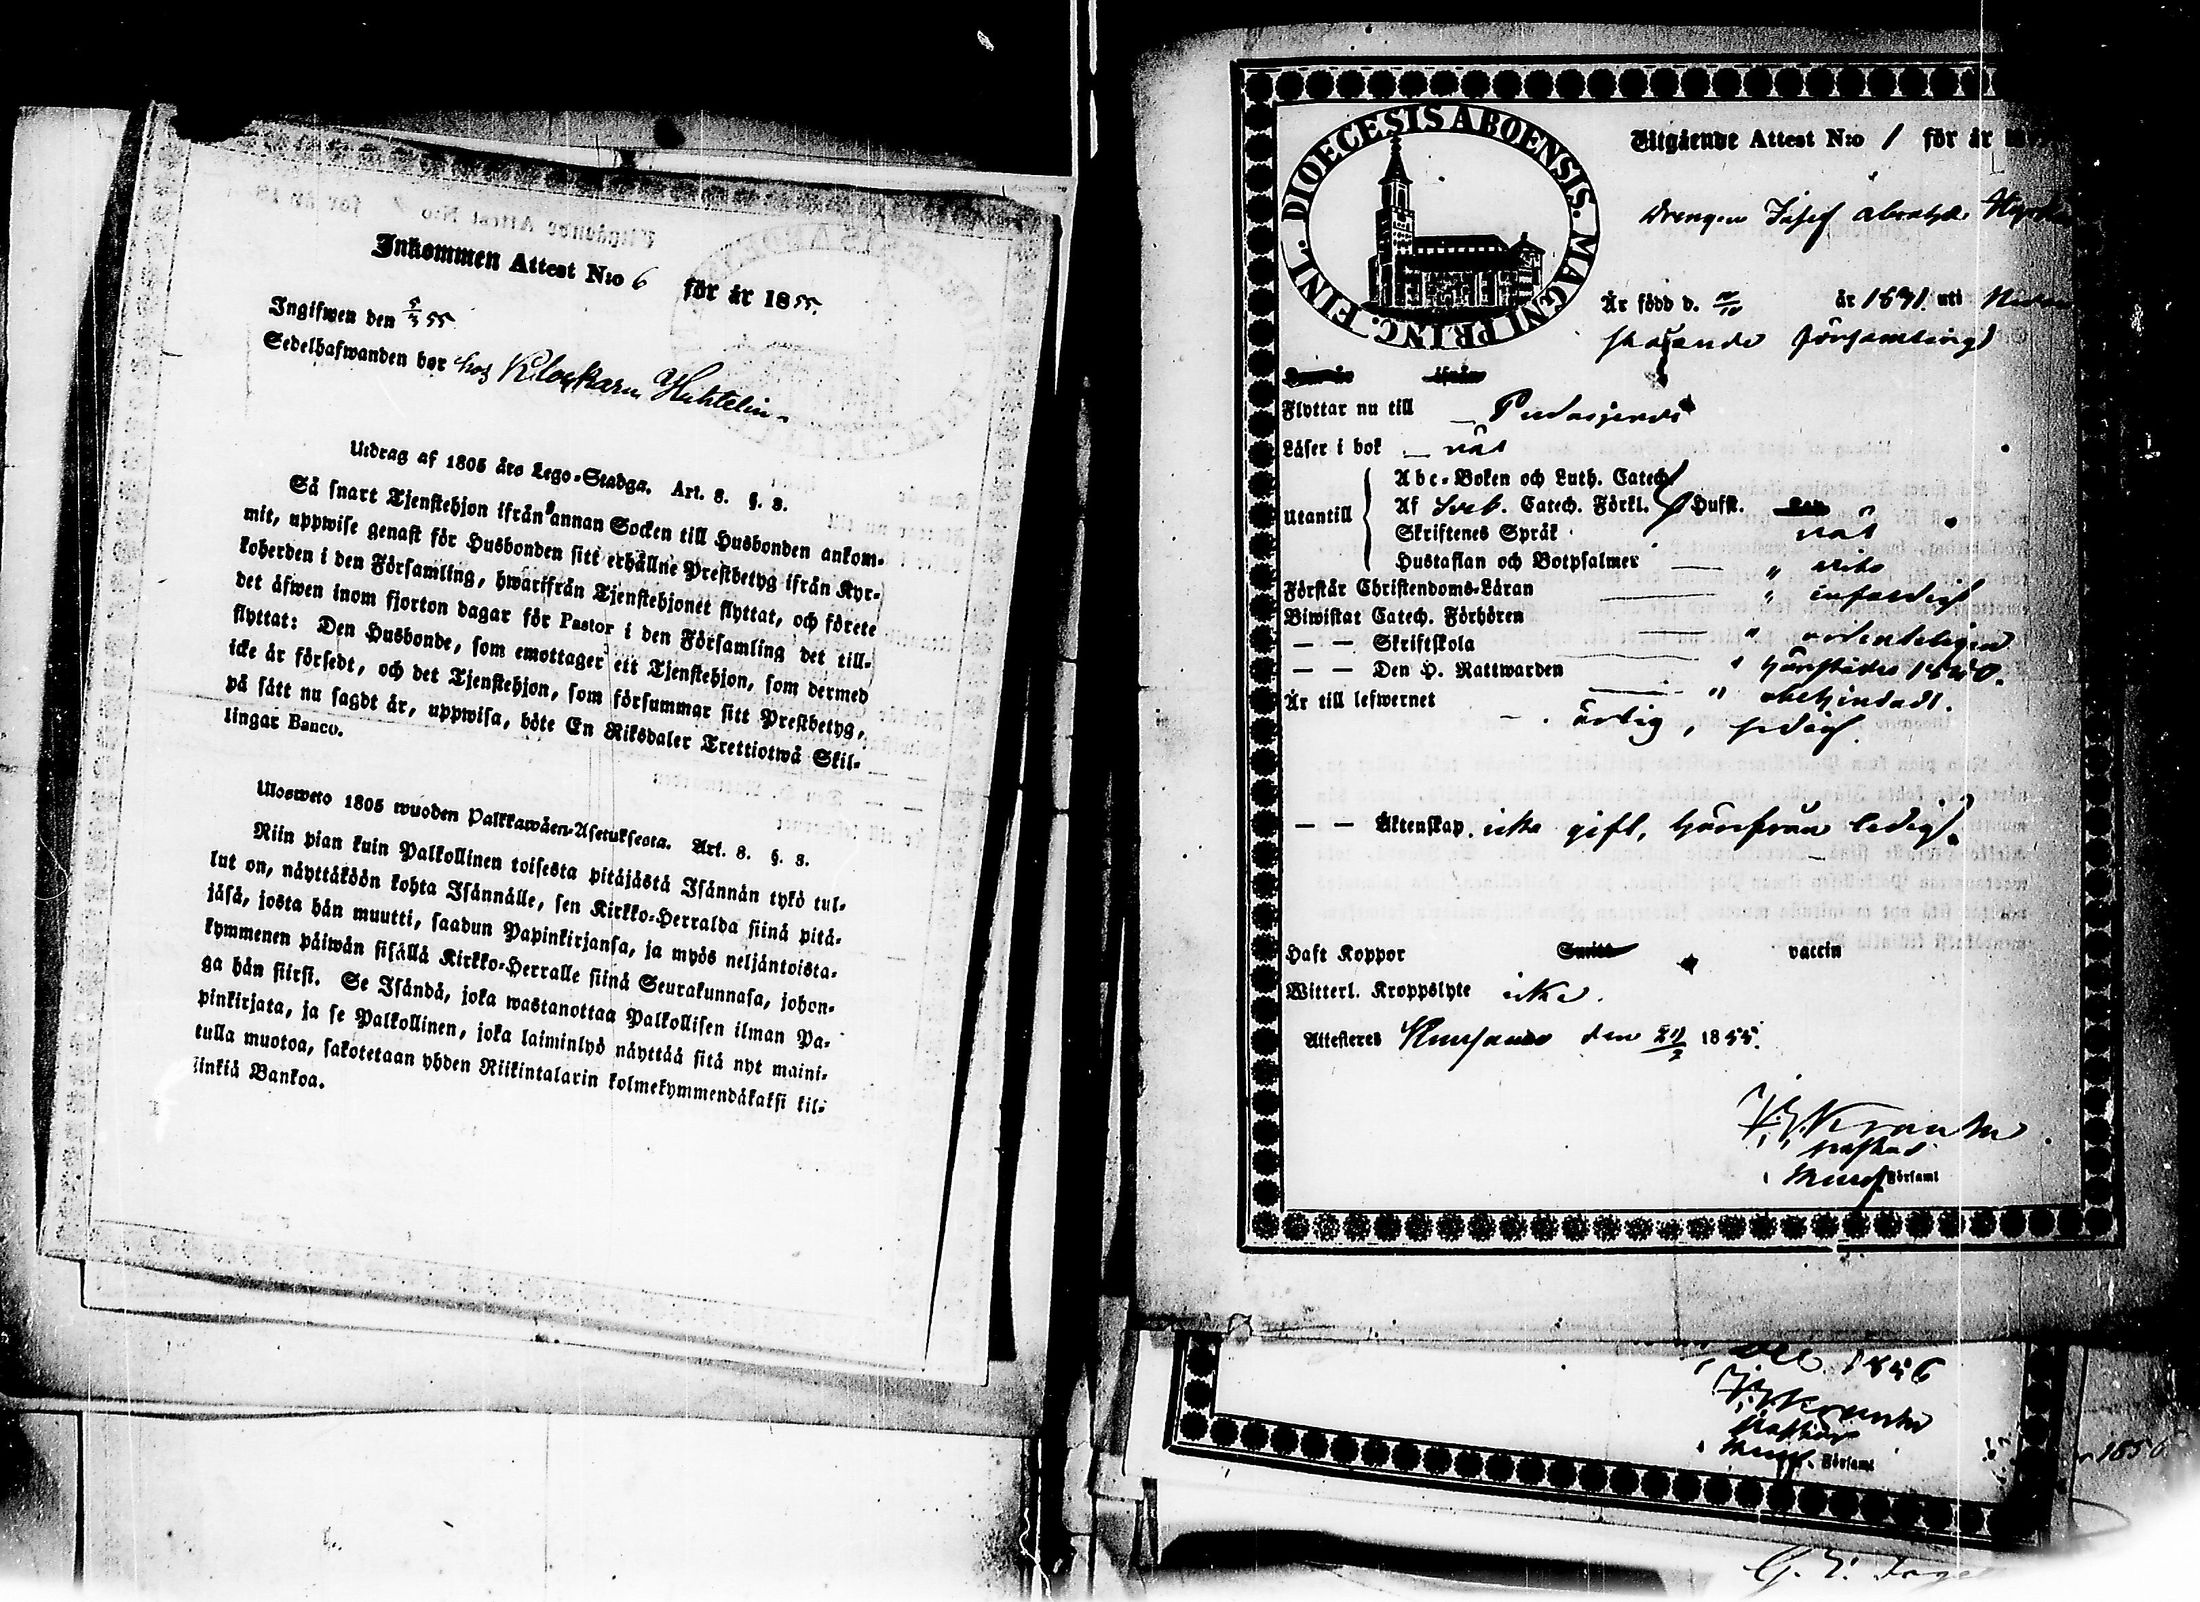 Inkommen Attest N:o 6 för år 1855.
Ingifwen den 5/3 55
Sedelhafwanden bor hos Klockaren Huhtelin
Utdrag af 1805 års Lego-Stadga. Art. 8. §. 8.
Så snart Tjenstehjon ifrån annan Socken till Husbonden ankom-
mit, uppwise genast för Husbonden sitt erhållne Prestbetyg ifrån Kyr-
koherden i den Församling, hwarifrån Tjenstehjonet flyttat, och förete
det äfwen inom fjorton dagar för Pastor i den Församling det till-
flyttat: Den Husbonde, som emottager ett Tjenstehjon, som dermed
icke är försedt, och det Tjenstehjon, som försummar sitt Prestbetyg,
på sätt nu sagdt är, uppwisa, böte En Riksdaler Trettiotwå Skil-
lingar Banco.
Uloswero 1805 wuoden Palkkawäen-Asetuksesta. Art. 8. §. 8.
Niin pian kuin Palkollinen toisesta pitäjästä Isännän tykö tul-
lut on, näyttäköön kohta Isännälle, sen Kirkko-Herralda siinä pitä-
jäsä, josta hän muutti, saadun Papinkirjansa, ja myös neljäntoista-
kymmenen päiwän sisällä Kirkko-Herralle siinä Seurakunnasa, johon-
ga hän siirsi. Se Isändä, joka wastanottaa Palkollisen ilman Pa-
pinkirjata, ja se Palkollinen, joka laiminlyö näyttää sitä nyt maini-
tulla muotoa, sakotetaan yhden Riikintalarin kolmekymmendäkaksi kil-
linkiä Bankoa.
DIOECESIS ABOENSIS. MAGNI PRINC. FINL.
Utgående Attest N:o 1 för år
Drengen Josef Abrahs.
Är född d. år 1831 uti
församling
Flyttar nu till Pudasjervi
Läser i bok nät
Abc-Boken och Luth. Catech.
Utantill Af Sveb. Catech. Förkl. Husst.
Skriftenes Språk nät
Hustaflan och Botpsalmer
Förstår Christendoms-Läran enfaldigt
Biwistat Catech. Förhören ordenteligen
— — Skriftskola härstädes 1850.
— — Den H. Nattwarden obehindadt.
Är till lefwernet ärlig,
— — Äktenskap. icke gift, härifrån ledig.
Haft Koppor vaccin
Witterl. Kroppslyte icke.
Attesteres Kuusamo den 20/2 1855.
Församl
1856
Församl
1856